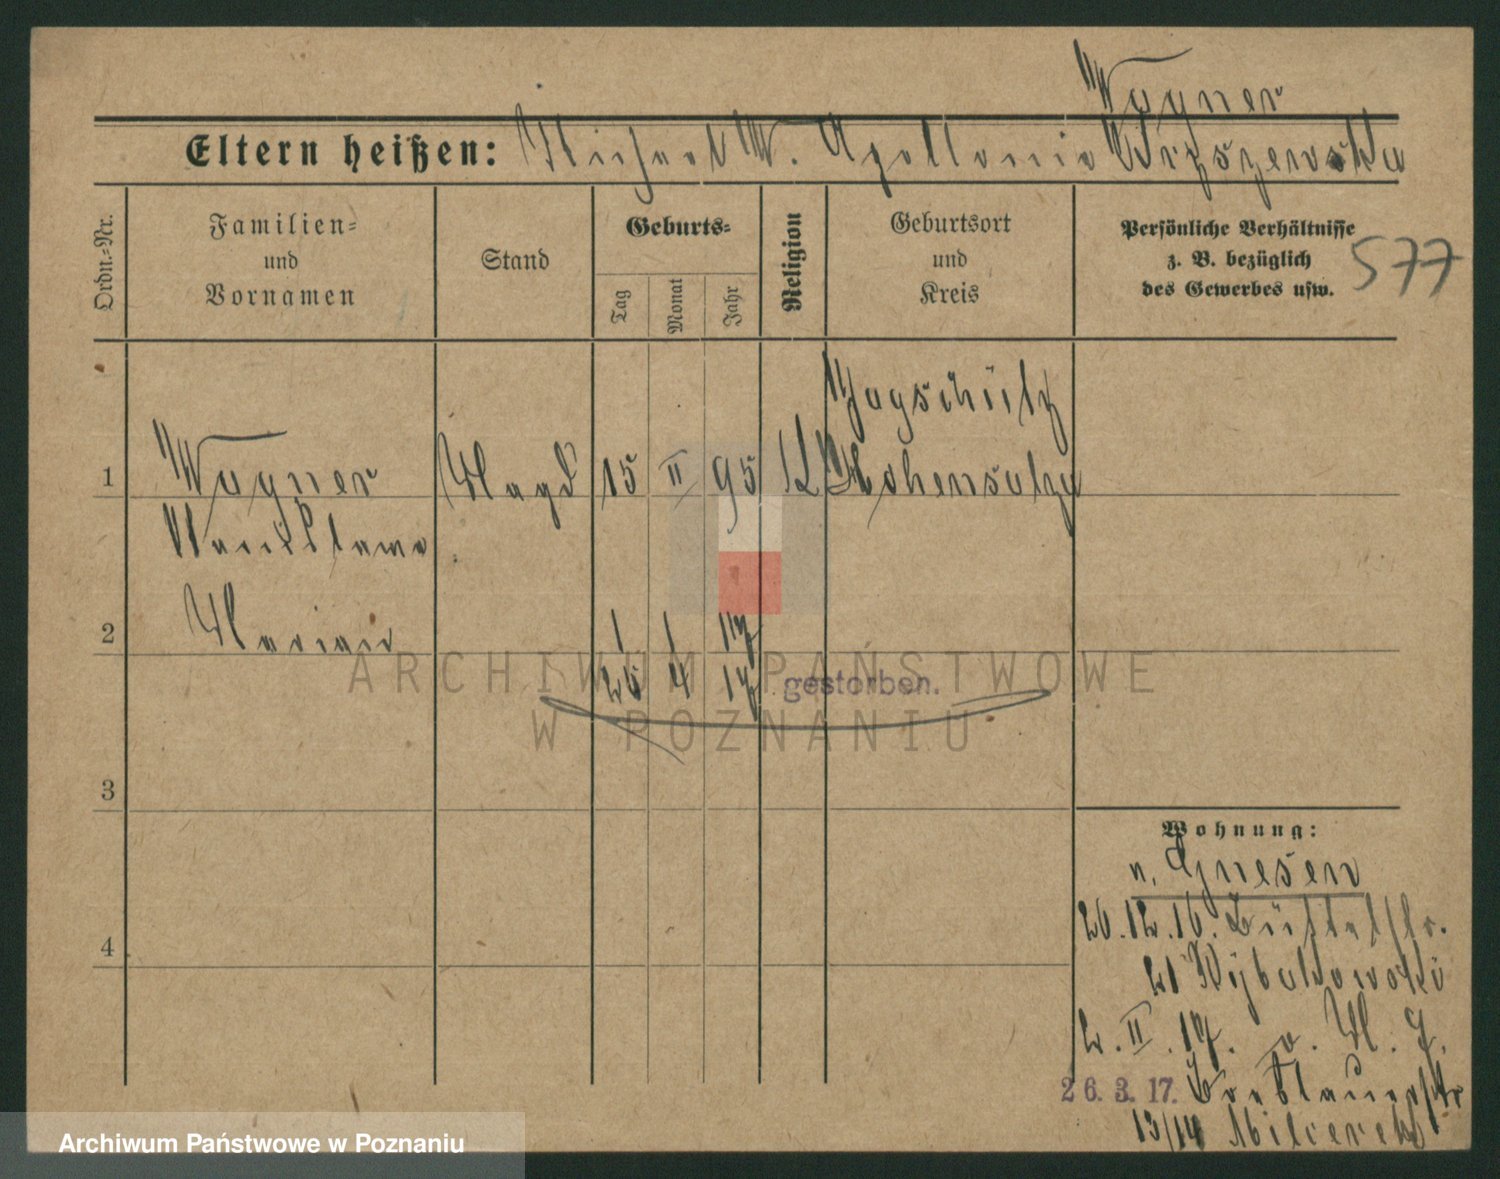 Wagner
Eltern heißen: Michael W. Apollonia Wrzszewska
Ordn.-Nr.
Familien-
und
Vornamen
Stand
Geburts-
Tag
Monat
Jahr
Religion
Geburtsort
und
Kreis
Persönliche Verhältnisse
z. B. bezüglich
des Gewerbes usw.
577
1
Wagner
Magd
15 II 95
K
Hohensalza
2
Marian
1 1 17
26 4 17 gestorben.
3
Wohnung:
n. Gnesen
26.12.16. Büttelstr.
21 Rybakowski
4
2. II. 17.
26. 3. 17. Breslauerstr
13/14
ARCHIWUM PAŃSTWOWE
W POZNANIU
Archiwum Państwowe w Poznaniu